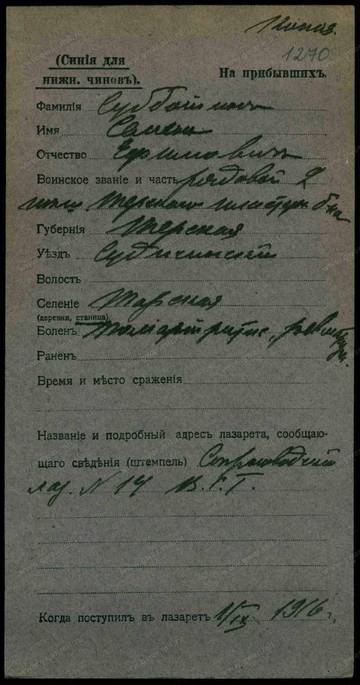 1270
(Синія для
нижн. чиновъ).
На прибывшихъ.
Фамилія Субботинъ
Имя Семенъ
Отчество Ефимовичъ
Воинское званіе и часть рядовой 2
Терскаго пластун. б-на
Губернія Терская
Уѣздъ Сунженскій
Волость
Селеніе Тарская
(деревня, станица)
Боленъ Поліартритис,
Раненъ
Время и мѣсто сраженія
Названіе и подробный адресъ лазарета, сообщаю-
щаго свѣдѣнія (штемпель)
лаз. N 14 В.Г.Г.
Когда поступилъ въ лазаретъ 1/IX 1916 г.